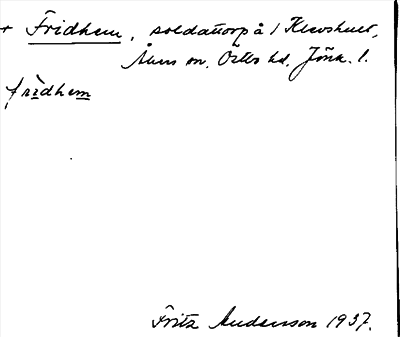 + Fridhem, soldattorp å 1 Klevshult,
Åkers sn. Östbo hd. Jönk. l.
fridhem
Fritz Anderson 1937.